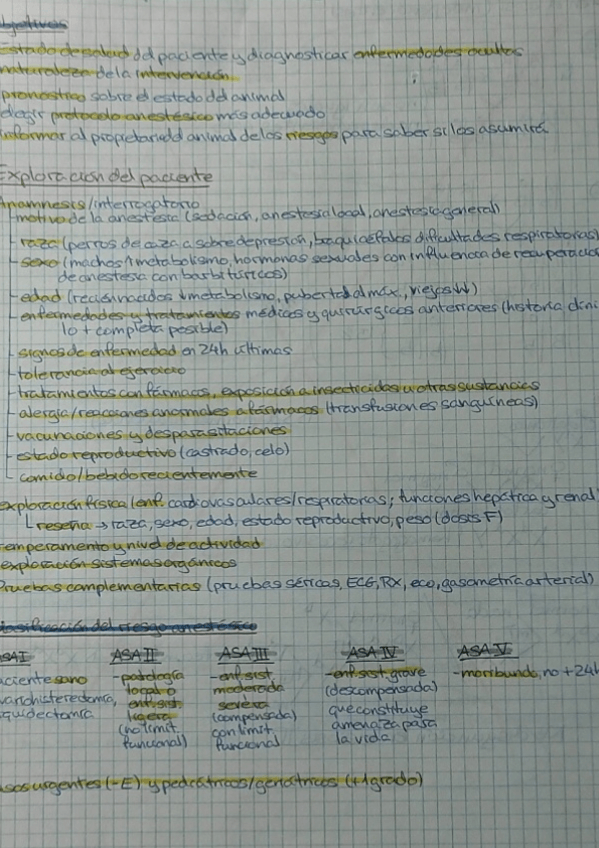 bjetivos
Estado de salud del paciente y diagnosticar enfermedades ocultas
naturaleza de la intervención
pronostico sobre el estado del animal
elegir protocolo anestésico más adecuado
informar al propietario del animal de los riesgos para saber si los asumirá
Exploración del paciente
Anamnesis/interrogatorio
motivo de la anestesia (sedación, anestesia local, anestesia general)
raza (perros de caza a sobredepresión, braquicéfalos dificultades respiratorias)
sexo (machos ↑metabolismo, hormonas sexuales con influencia de recuperación
de anestesia con barbitúricos)
edad (recién nacidos ↓metabolismo, pubertad al máx., viejos ↓↓)
enfermedades y tratamientos médicos y quirúrgicos anteriores (historia clíni
lo + completa posible)
signos de enfermedad en 24h últimas
tolerancia al ejercicio
tratamientos con fármacos, exposición a insecticidas u otras sustancias
alergia/reacciones anormales a fármacos (transfusiones sanguíneas)
vacunaciones y desparasitaciones
estado reproductivo (castrado, celo)
comido/bebido recientemente
exploración física (enf. cardiovasculares/respiratorias; funciones hepática y renal
reseña → raza, sexo, edad, estado reproductivo, peso (dosis F)
temperamento y nivel de actividad
exploración sistemas orgánicos
Pruebas complementarias (pruebas séricas, ECG, RX, eco, gasometría arterial)
clasificación del riesgo anestésico
ASA I ASA II ASA III ASA IV ASA V
paciente sano -patología -enf. sist. -enf. sist. grave -moribundo, no +24h
ovariohisterectomía, local o moderada (descompensada)
quidectomía enf. sist. severa que constituye
ligera (compensada) amenaza para
(no limit. con limit. la vida
funcional) funcional
casos urgentes (-E) y pediátricos/geriátricos (+1 grado)